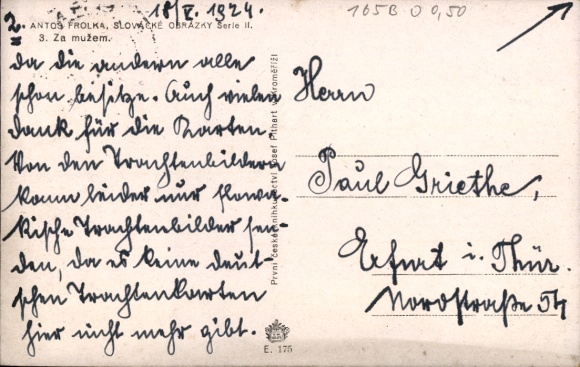 2. 18/V. 1924. 165B O 0,50
ANTOŠ FROLKA, SLOVÁCKÉ OBRÁZKY Serie II.
3. Za mužem.
da die andern alle
schon besitze. Auch vielen
dank für die Karten.
Von den Trachtenbildern
kann leider nur slowa-
kische Trachtenbilder sen-
den, da es keine deut-
schen Trachtenkarten
hier nicht mehr gibt.
První české knihkupectví Josef Pithart v Kroměříži
E. 175
Herrn
Paul Griethe,
Erfurt i. Thür.
Nordstraße 54